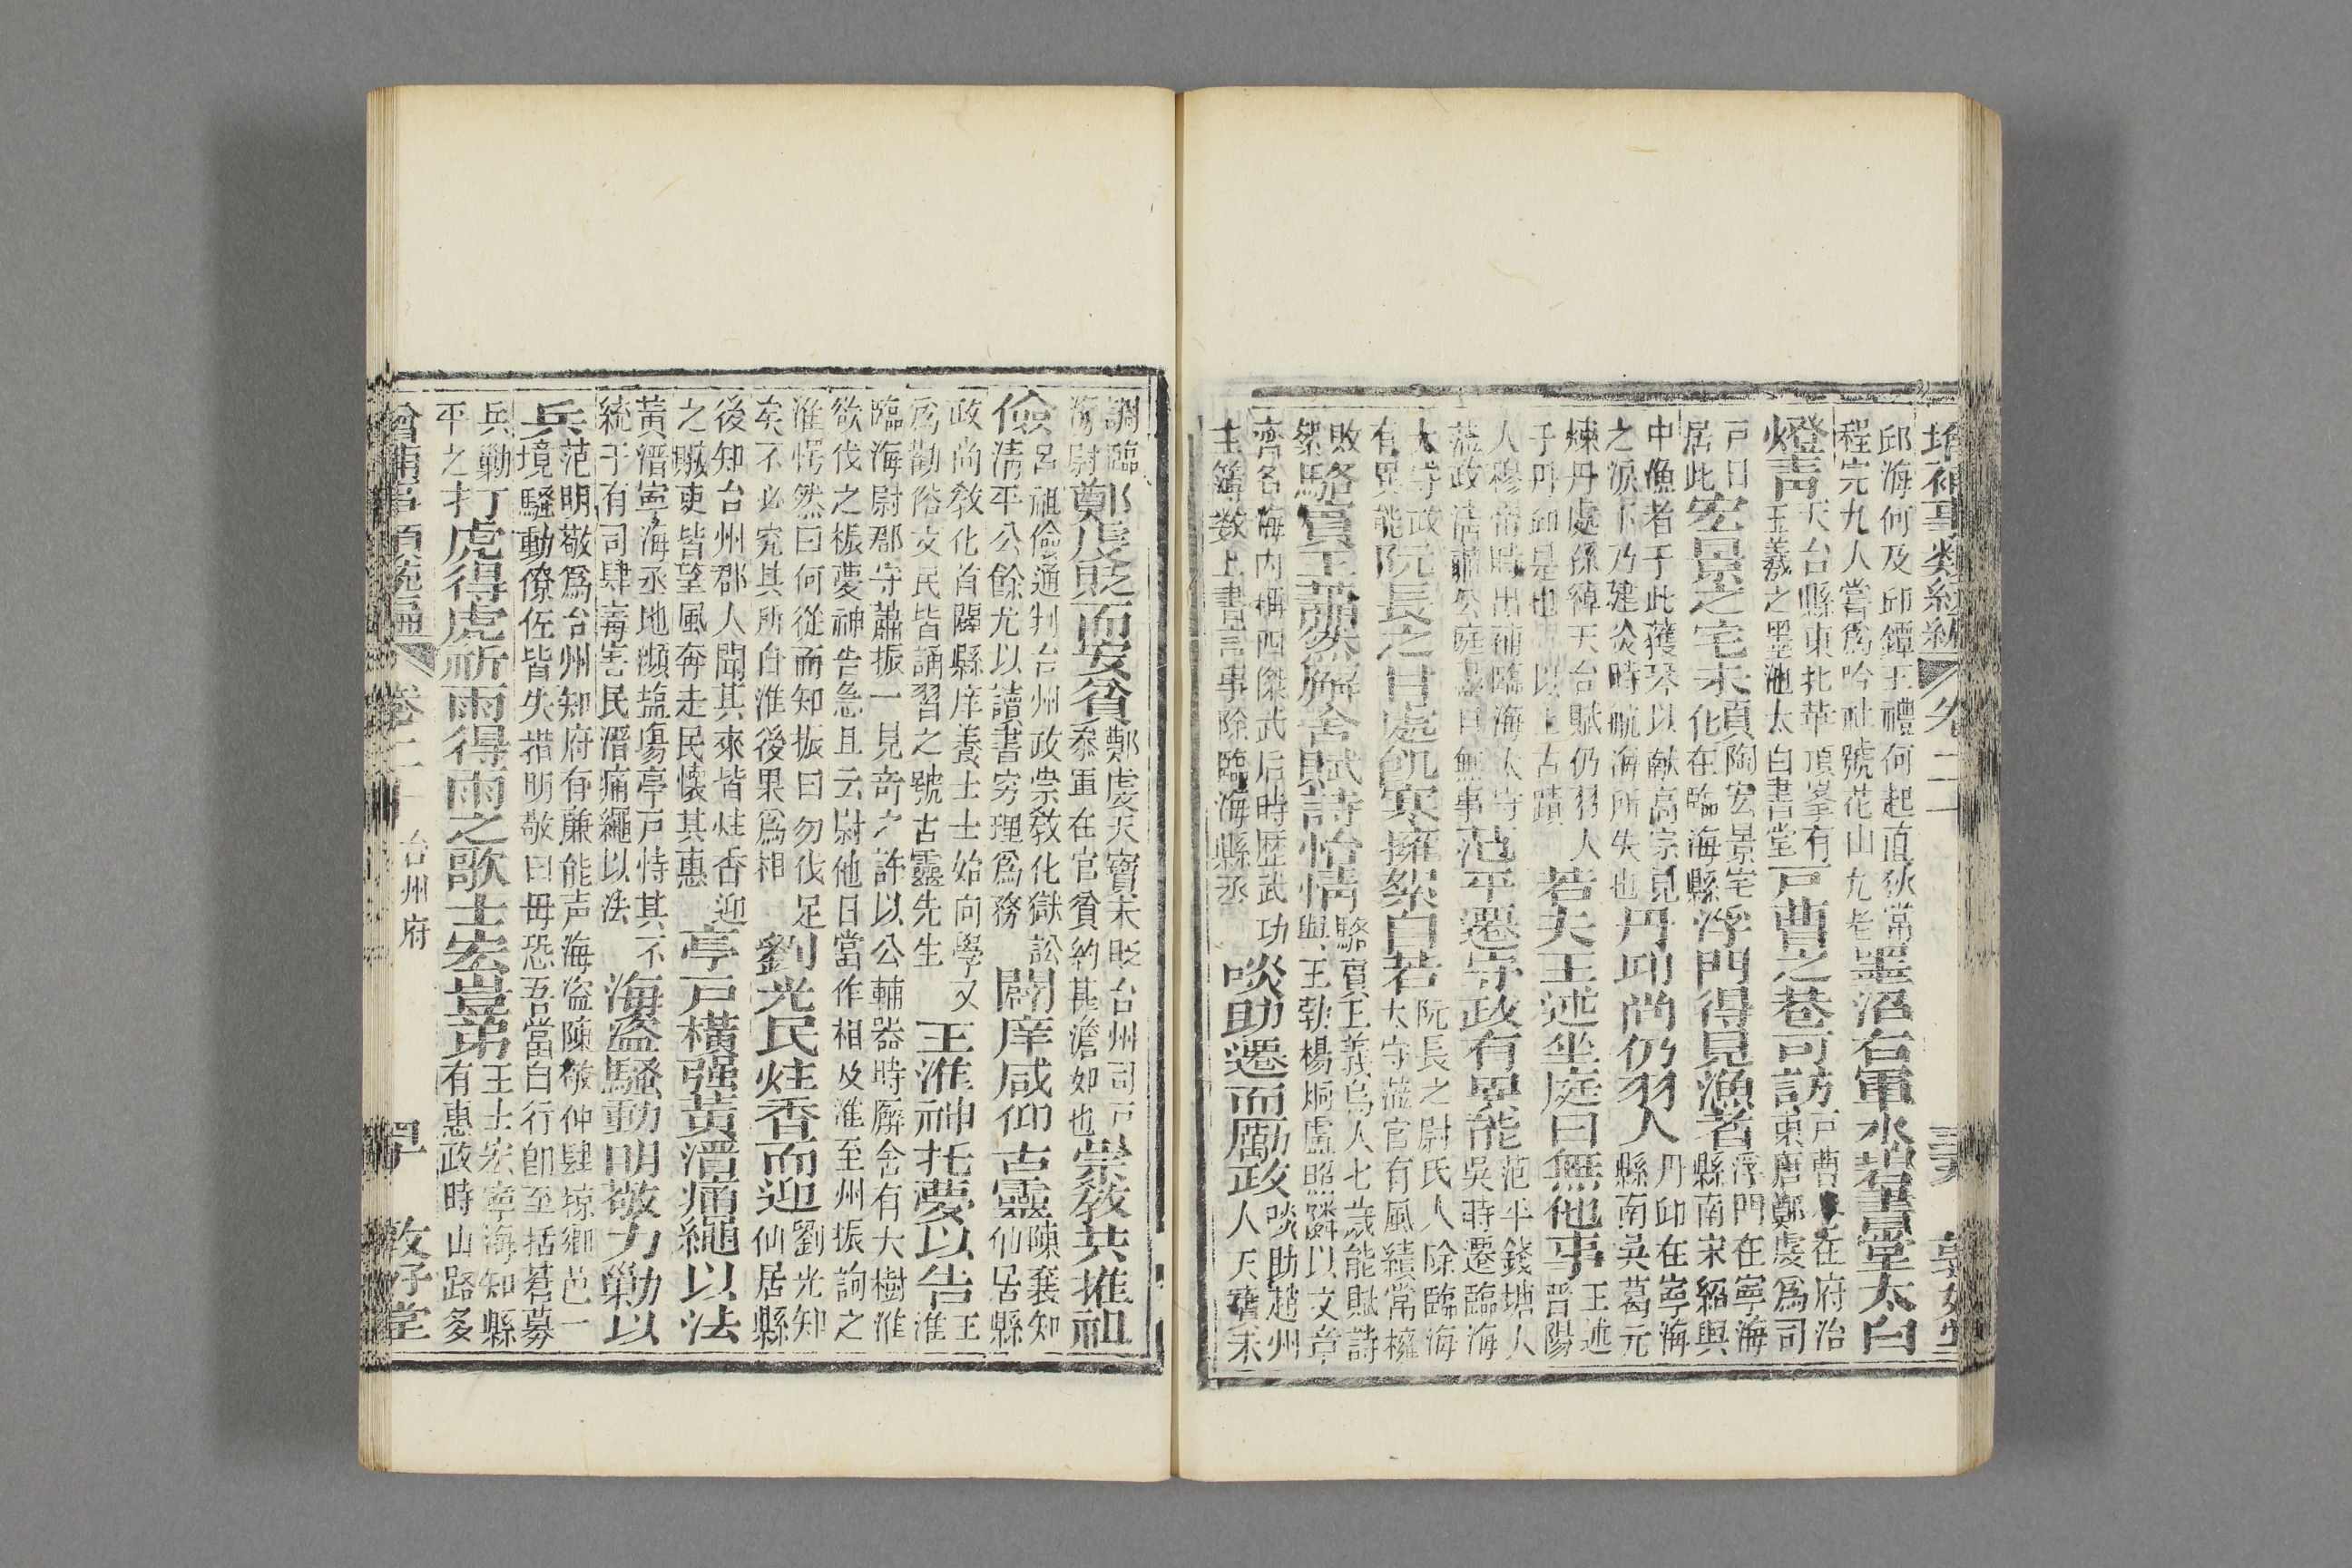 增補事類統編 卷二十
邱海何及邱鐔王禮何起直狄常
程完九人嘗爲吟社號花山九老墨沼右軍水碧書堂太白
燈靑天台縣東北華頂峯有王羲之墨池太白書堂戸曹之巷可訪戸曹巷在府治東唐鄭虔爲司
戸日居此宏景之宅未頃陶宏景宅化在臨海縣浮門得見漁者浮門在寧海縣南宋紹興
中漁者于此獲琴以献高宗見
之淚下乃建炎時航海所失也丹邱尚仍羽人丹邱在寧海縣南吳葛元
煉丹處孫綽天台賦仍羽人
于丹邱是也 以上古蹟 若夫王述坐庭曰無他事王述晉陽
人穆帝時出補臨海太守
蒞政淸肅公庭盡日無事范平遷守政有異能范平錢塘人吳時遷臨海
太守政有異能阮長之甘處飢寒擁絮自若阮長之尉氏人除臨海太守蒞官有風績常擁
敗絮駱賓王蕭然廨舍賦詩怡情駱賓王義烏人七歲能賦詩與王勃楊烱盧照隣以文章
齊名海内稱四傑武后時歷武功
主簿数上書言事除臨海縣丞 啖助遷而勵政啖助趙州人天寶末
調臨海尉鄭虔貶而安貧鄭虔天寶末貶台州司戸參軍在官貧約甚澹如也崇敎共推祖
儉呂祖儉通判台州政崇敎化獄訟淸平公餘尤以讀書穷理爲務闢庠咸仰古靈陳襄知仙居縣
政尚敎化首闢縣庠養士士始向學又
爲勸俗文民皆誦習之號古靈先生 王淮神托夢以告王淮
臨海尉郡守蕭振一見奇之許以公輔器時廨舍有大樹淮
欲伐之振夢神告急且云尉他日當作相及淮至州振詢之
淮愕然曰何從而知振曰勿伐足
矣不必究其所自淮後果爲相 劉光民炷香而迎劉光知仙居縣
後知台州郡人聞其來皆炷香迎
之賑吏皆望風奔走民懷其惠亭戸橫强黃㴋痛繩以法
黃㴋寧海丞地瀕塩塲亭戸恃其不
統于有司肆毒害民㴋痛繩以法 海盗騷動明敬力勦以
兵范明敬爲台州知府有亷能声海盗陳敬仲肆掠鄉邑一境騷動僚佐皆失措明敬曰毋恐吾當自行卽至括蒼募
兵勦平之打虎得虎祈雨得雨之歌士宏豈弟王士宏寧海知縣有惠政時山路多
增補事類統編 卷二十 台州府 敦好堂